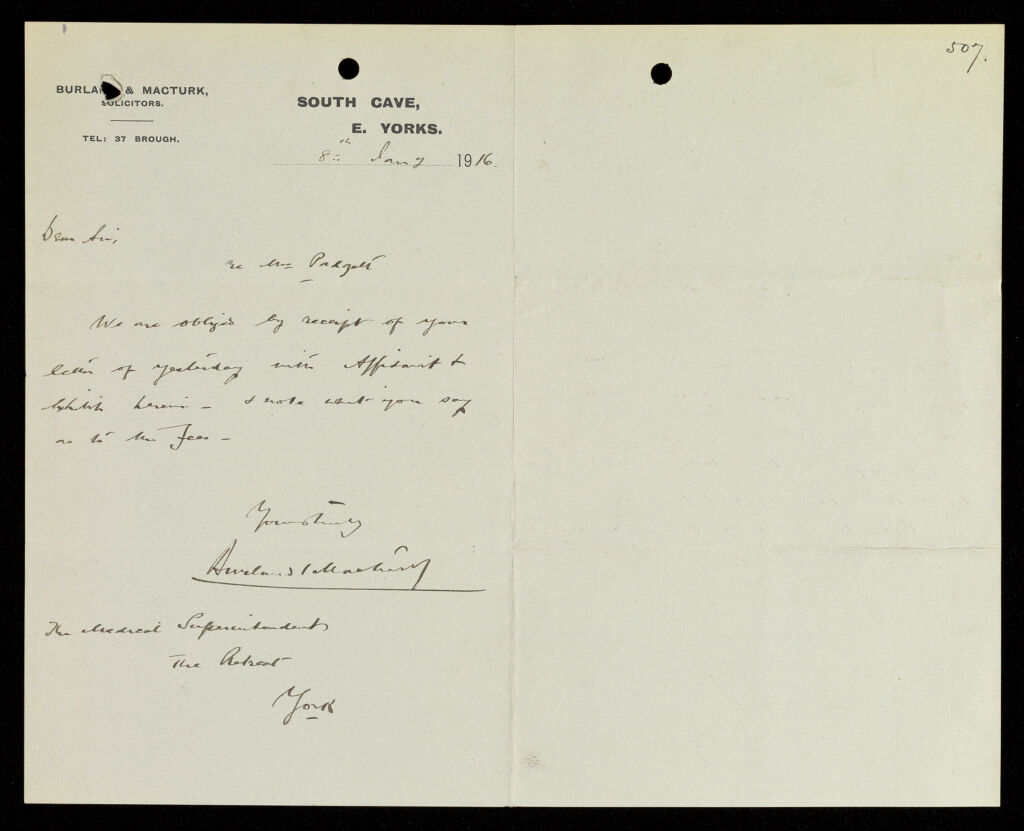 507.
BURLAND & MACTURK,
SOLICITORS.
TEL: 37 BROUGH.
SOUTH CAVE,
E. YORKS.
8th Jany 1916.
Dear Sir,
re Mrs Padgett
We are obliged by receipt of your
letter of yesterday with Affidavit &
Exhibit herein - & note what you say
as to the Fees -
Yours truly
Burland & Macturk
The Medical Superintendent
The Retreat
York